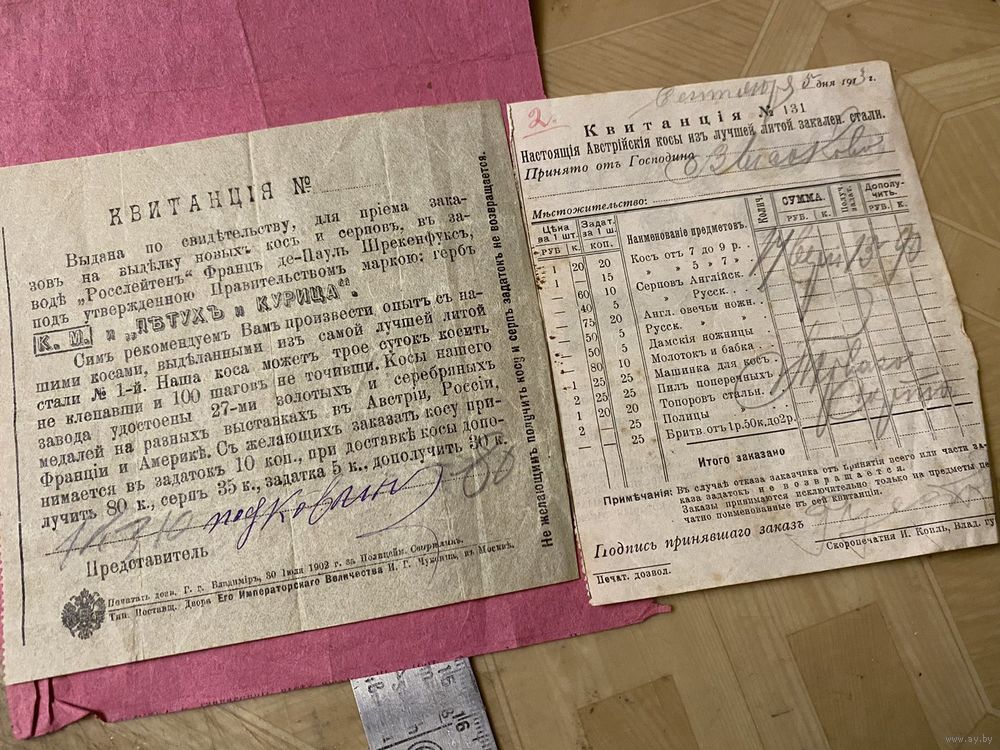 КВИТАНЦІЯ №
Выдана по свидѣтельству, для пріема зака-
зовъ на выдѣлку новыхъ косъ и серповъ, въ за-
водѣ „Росслейтенъ“ Францъ де-Пауль Шрекенфуксъ,
подъ утвержденною Правительствомъ маркою: гербъ
К. Ш. и „ПѢТУХЪ и КУРИЦА“.
Симъ рекомендуемъ Вамъ произвести опытъ съ на-
шими косами, выдѣланными изъ самой лучшей литой
стали № 1-й. Наша коса можетъ трое сутокъ косить
не клепавши и 100 шаговъ не точивши. Косы нашего
завода удостоены 27-ми золотыхъ и серебряныхъ
медалей на разныхъ выставкахъ въ Австріи, Россіи,
Франціи и Америкѣ. Съ желающихъ заказать косу при-
нимается въ задатокъ 10 коп., при доставкѣ косы допо-
лучить 80 к., серпъ 35 к., задатка 5 к., дополучить 30 к.
Представитель
Печатать дозв. Г. г. Владиміръ, 30 Іюля 1902 г. за Полицейм.
Тип. Поставщ. Двора Его Императорскаго Величества И. Г. Чуксина, въ Москвѣ.
Не желающимъ получить косу и серпъ задатокъ не возвращается.
2.
Сентября 5 дня 1913 г.
Квитанція № 131
Настоящія Австрійскія косы изъ лучшей литой закален. стали.
Принято отъ Господина
Мѣстожительство:
Цѣна за 1 шт. Задат. за 1 ш. Наименованіе предметовъ. Колич. СУММА. Получ. задат. Дополу-чить.
РУБ К. КОП. РУБ. К. РУБ. К.
1 20 20 Косъ отъ 7 до 9 р.
1 15 „ „ 5 „ 7 „
60 10 Серповъ Англійск.
40 5 „ Русск.
75 20 Англ. овечьи ножн.
50 5 Русск. „ „
50 5 Дамскія ножницы
80 10 Молотокъ и бабка
1 25 25 Машинка для косъ
2 25 25 Пилъ поперечныхъ
1 20 20 Топоровъ стальн.
2 25 Полицы
25 Бритв. отъ 1 р. 50 к. до 2 р.
Итого заказано
Примѣчанія: Въ случаѣ отказа заказчика отъ принятія всего или части за-
каза задатокъ не возвращается.
Заказы принимаются исключительно только на предметы пе-
чатно поименованные въ сей квитанціи.
Подпись принявшаго заказъ
Печат. дозвол.
Скоропечатня И. Копль, Влад. гу
15 16
www.ay.by